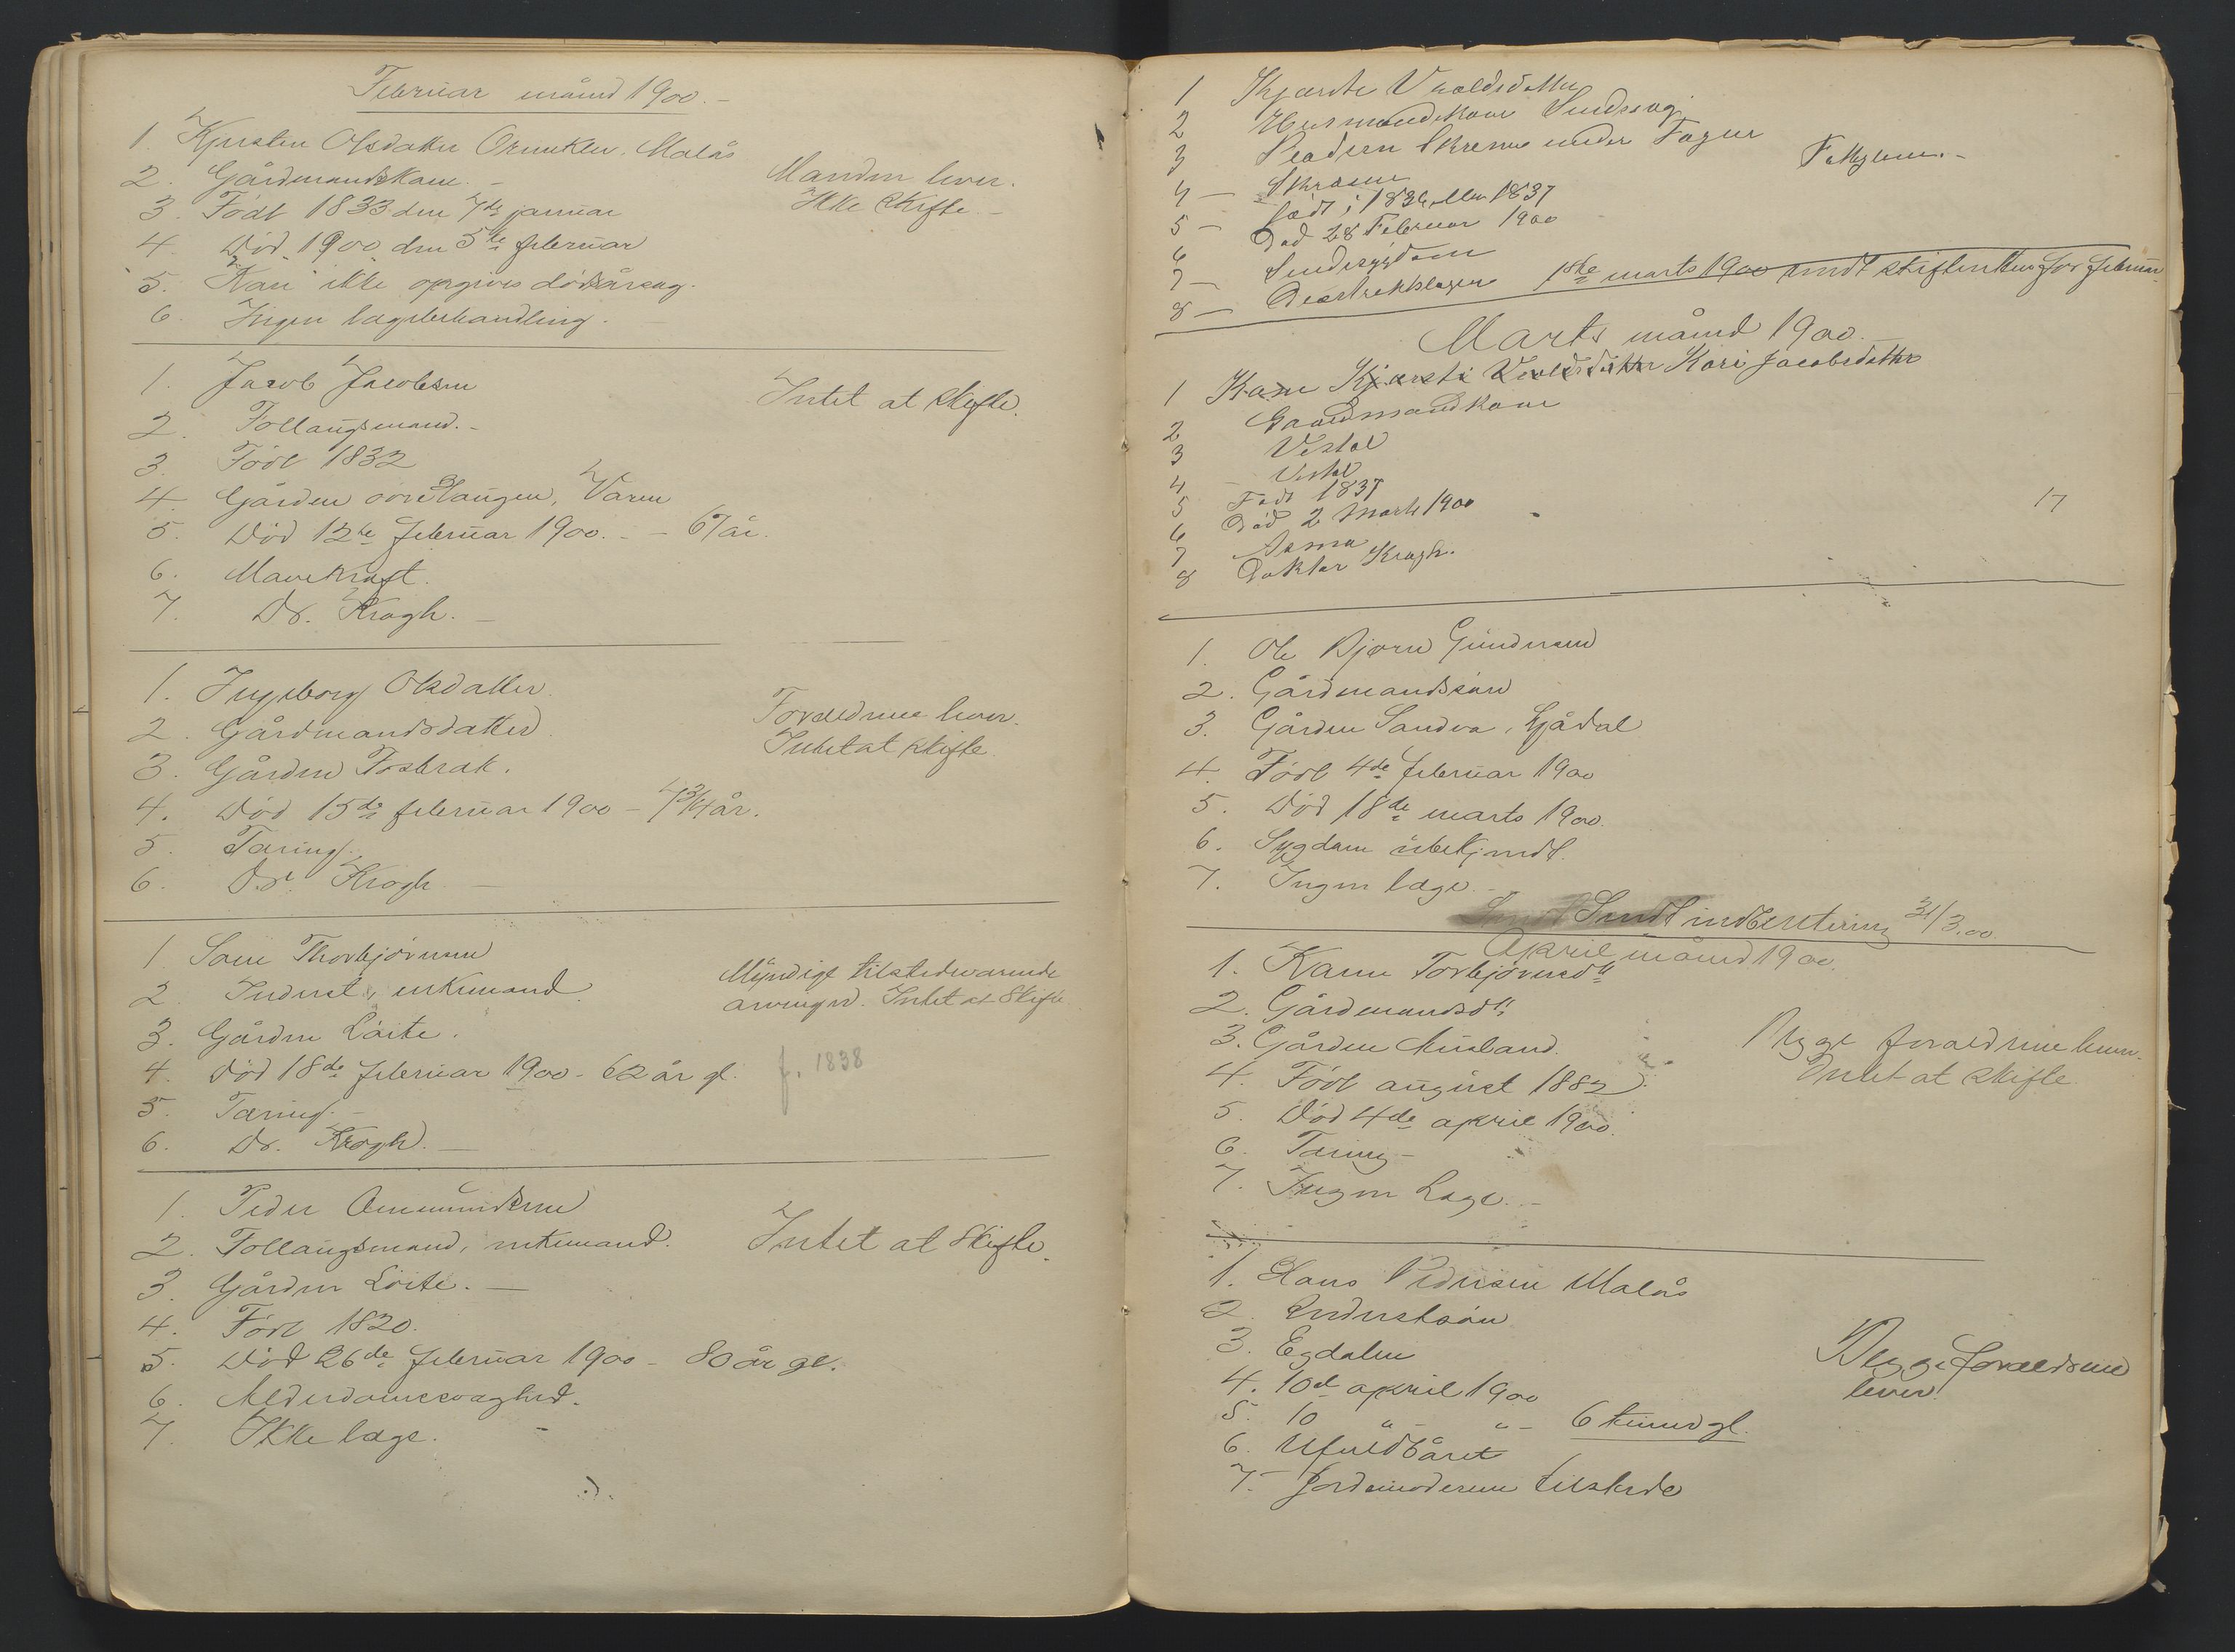 Februar måned 1900.-
1. Kjersten Olsdatter Malås
2. Gårdmandskone. -
Manden lever.
3. Født 1833 den 7de januar
Ikke skifte -
4. Død 1900 den 5te februar
5. Kan ikke opgives dødsårsag.
6. Ingen lægebehandling. -
1. Jacob Jacobsen
Intet at skifte.
2. Follaugsmand. -
3. Født 1832
4. Gården
5. Død 12te februar 1900. - - 67 år.
6. Mavekræft.
7. Dr. Krogh. -
1. Ingeborg Olsdatter.
Forældrene lever.
2. Gårdmandsdatter
Intet at skifte
3. Gården Fosbrak.
4. Død 15de februar 1900 - 7 3/4 år.
5. Tæring.
6. Dr. Krogh -
1 Thorbjørnsen
Myndige tilstedeværende
2. Inderst, enkemand.
arvinger. Intet at skifte
3. Gården Løite.
4. Død 18de februar 1900 - 62 år gl.
f. 1838
5. Tæring. -
6. Dr. Krogh. -
1. Peder Ammundsen
2. Follaugsmand, enkemand.
Intet at skifte.
3. Gården Løite. -
4. Født 1820.
5. Død 26de februar 1900 - 80 år gl.
6. Alderdomssvaghed.
7. Ikke læge.
1 Kjærsti
2 Husmandskone
3 under
Fattiglem. -
4 -
5 - født i 1836 eller 1837
6 Død 28 Februar 1900
7 -
8 - 1ste marts 1900 sendt skifteretten for februar
Marts måned 1900.
1 Kari Jacobsdatter
2 Gaardmandkone
3 Vestal
4 - Vestal
5 Født 1837
17
6 Død 2 Marts 1900
7 Asma
8 Doktor Krogh.
1. Ole Bjørn Gundersen
2. Gårdmandssøn
3. Gården Sandva,
4. Født 4de februar 1900
5. Død 18de marts 1900.
6. Sygdom ubekjendt.
7. Ingen læge. -
Sendt indberetning 31/3.00
April måned 1900.
1. Torbjørnsdtr
2. Gårdmandsdtr
3. Gården Musland.
Begge forældrene lever.
4. Født august 1882.
Intet at skifte
5. Død 4de april 1900.
6. Tæring -
7. Ingen Læge. -
1. Hans Pedersen Malås
2. Inderstsøn
3. Egdalen
Begge forældrene
4. 10de april 1900
lever.
5. 10 " - " - 6 timer gl.
6. Ufuldbåret
7. Jordmoderen tilstede